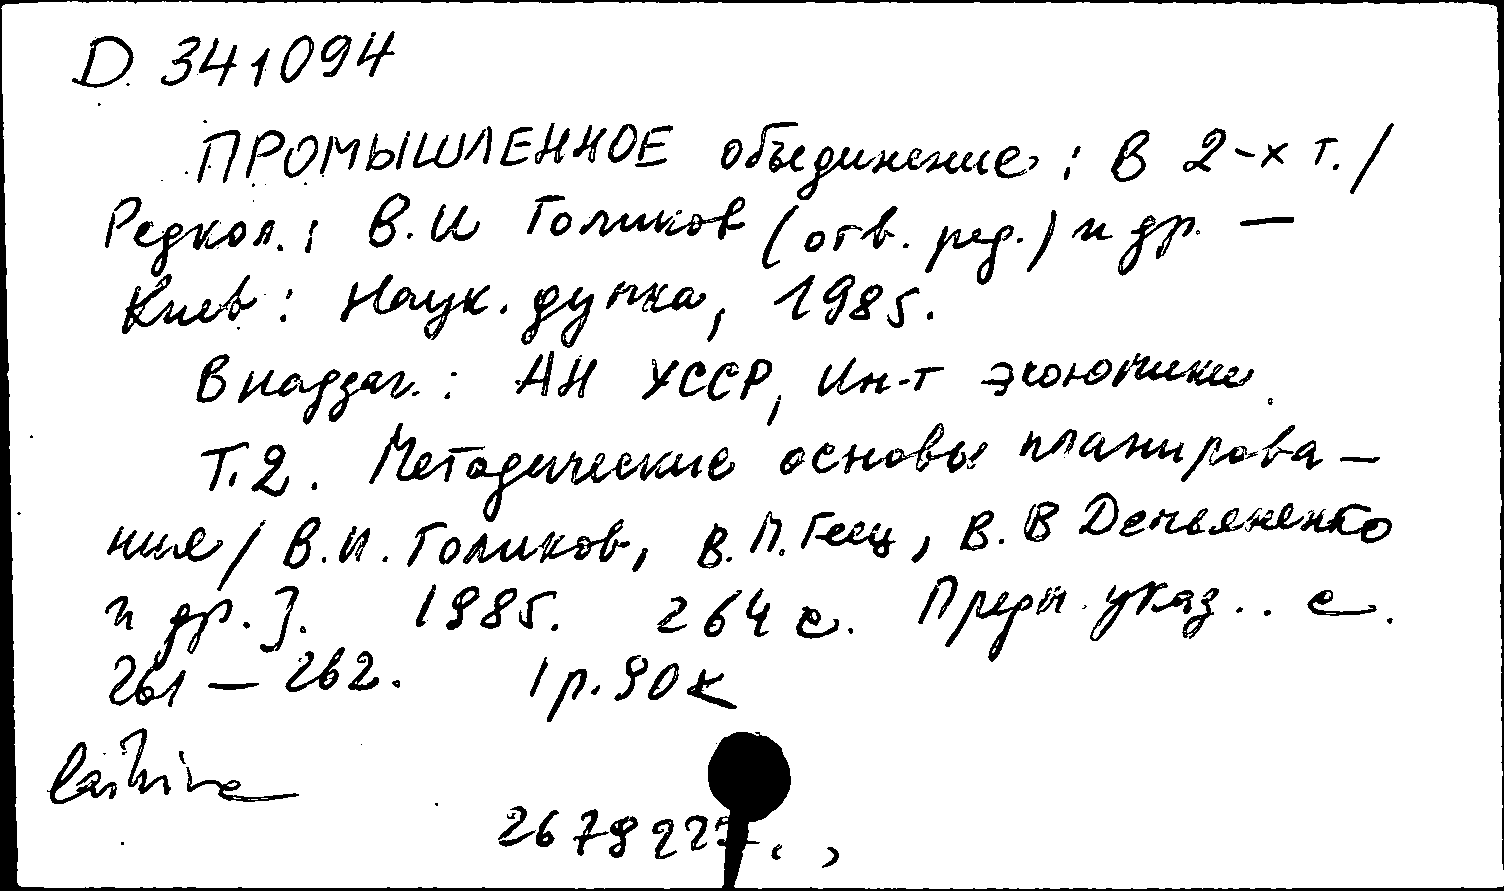 D 341094
ПРОМЫШЛЕННОЕ объединение: В 2-х т. /
Редкол.: В.И Голиков (отв. ред.) и др. —
Киев: Наук. думка, 1985.
В надзаг.: АН УССР, Ин-т экономики.
Т.2. Методические основы планирова-
ния / В.И. Голиков, В.М. Геец, В.В Демьяненко
и др.]. 1985. 264 с. Предм. указ.. с.
261 — 262. 1 р. 90 к